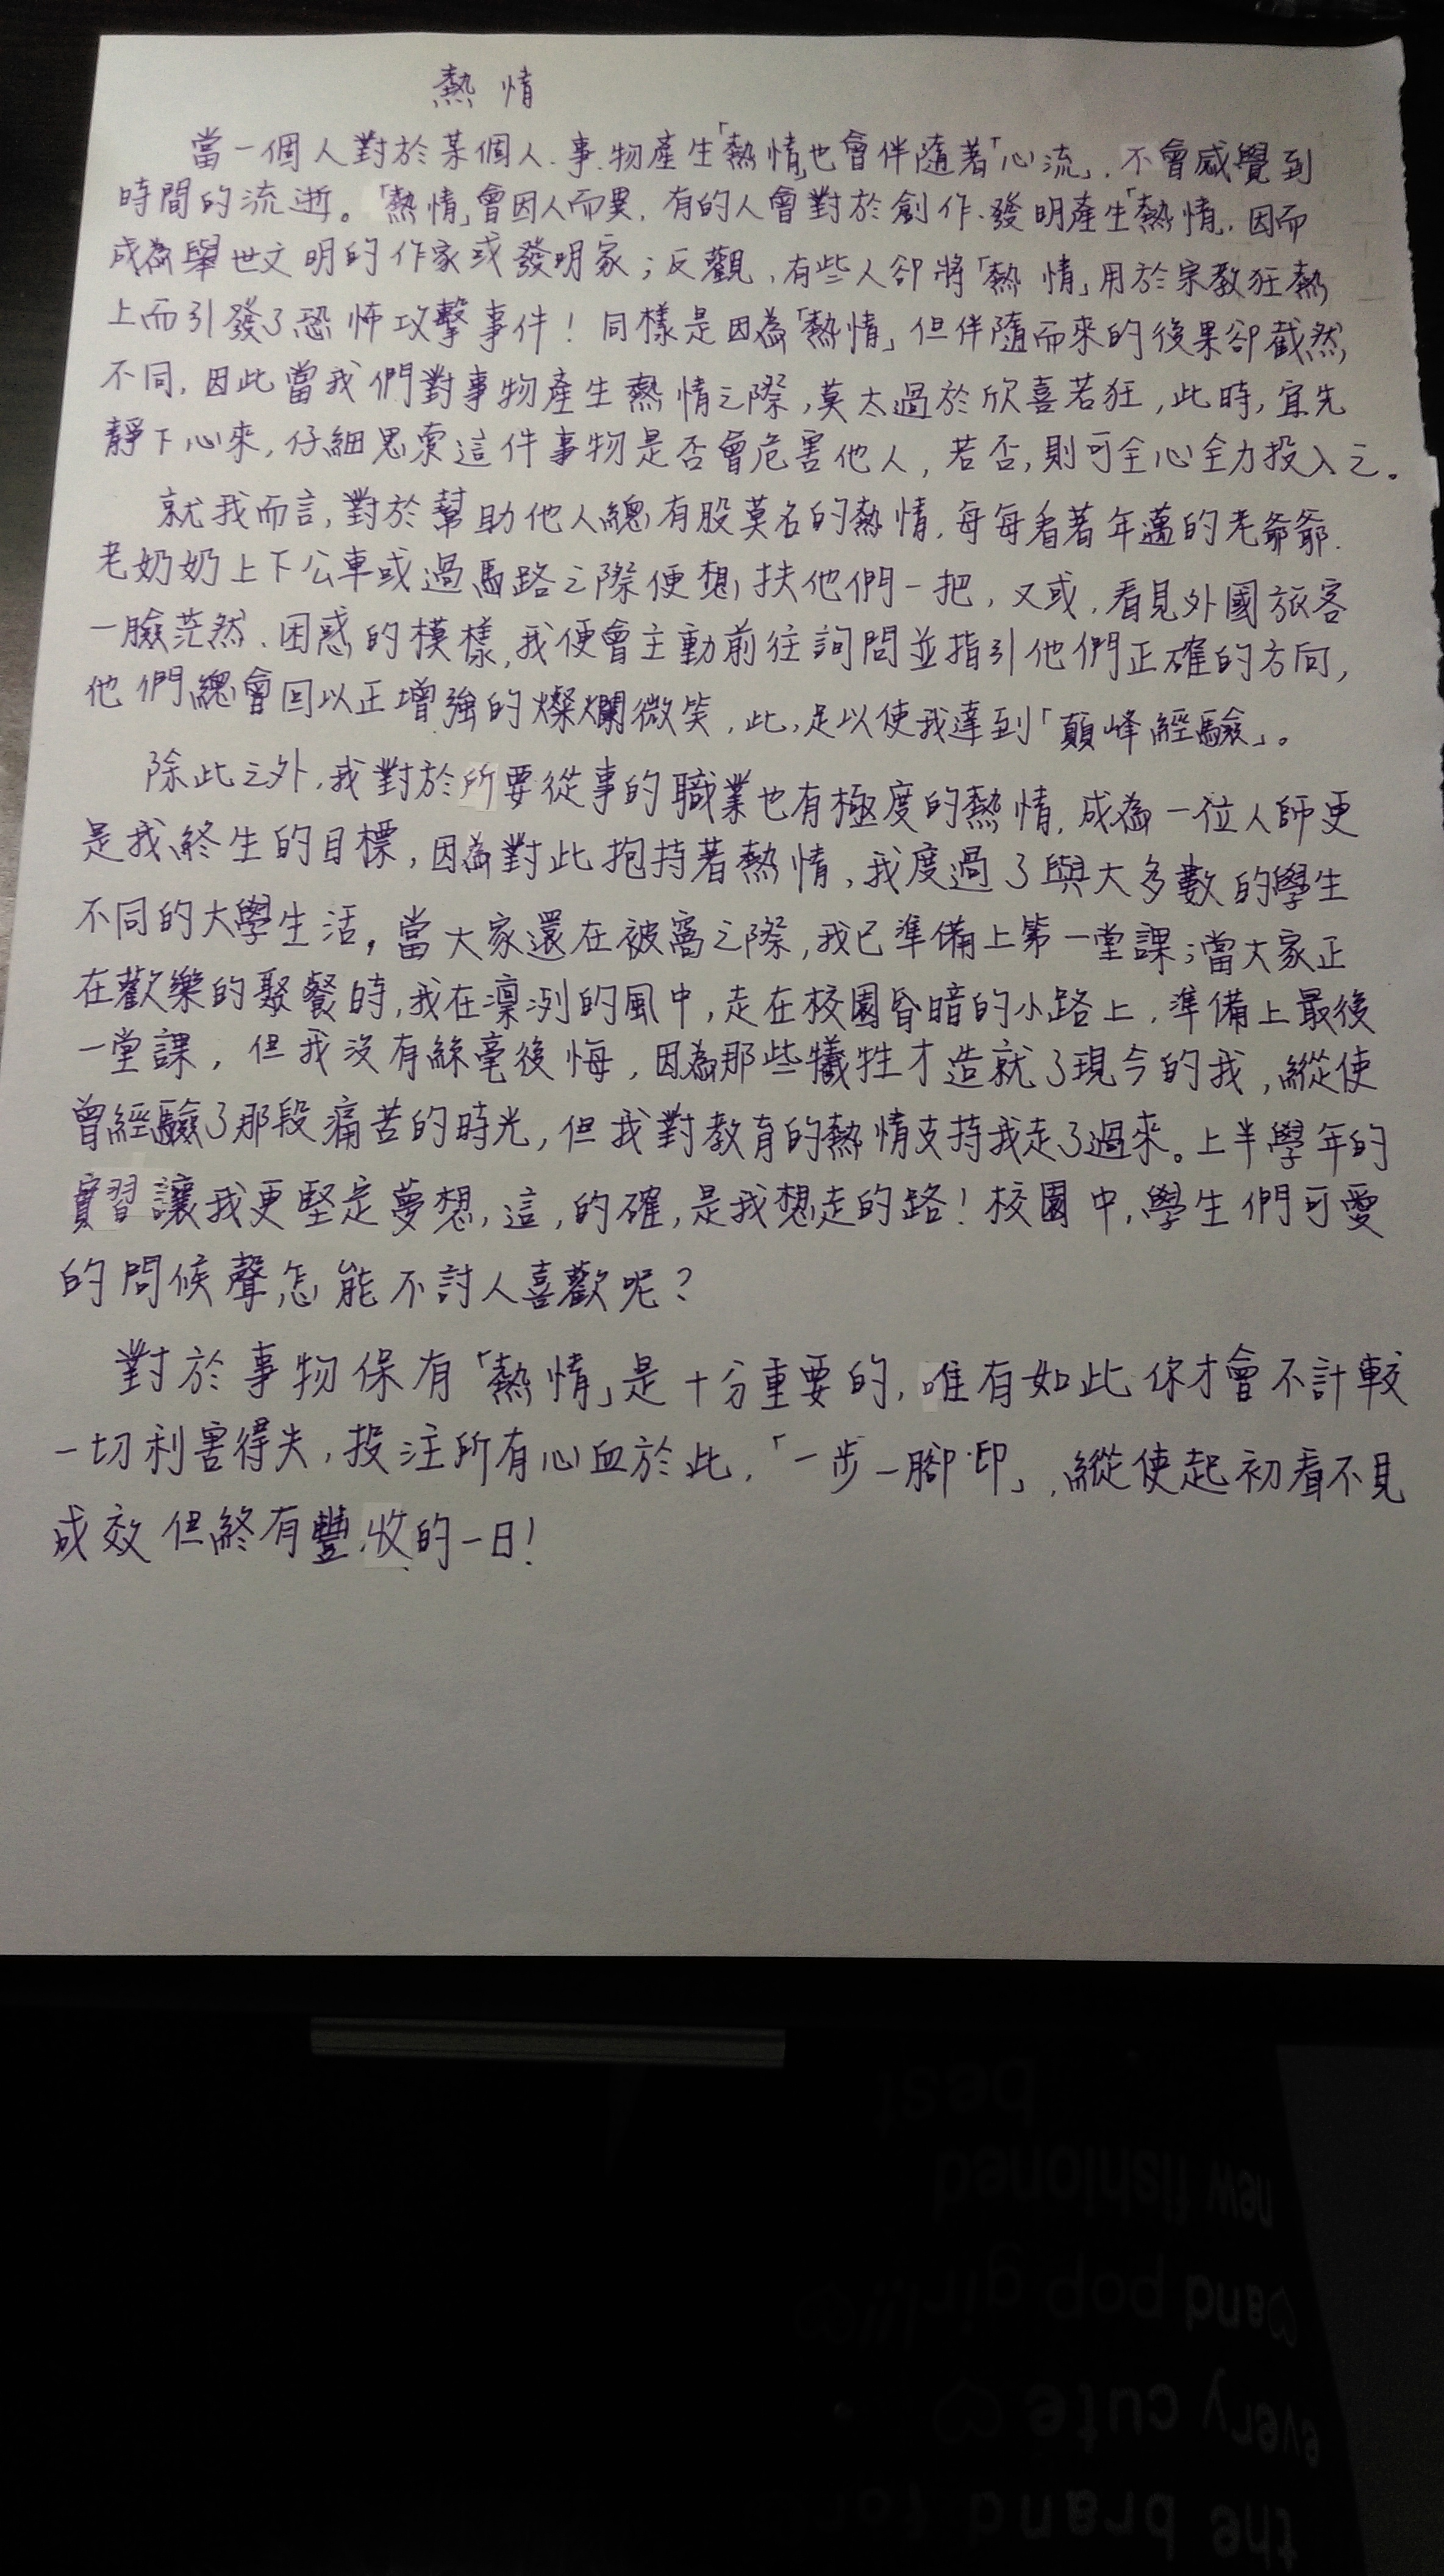 熱情
當一個人對於某個人、事、物產生「熱情」也會伴隨著「心流」,不會感覺到
時間的流逝。「熱情」會因人而異,有的人會對於創作、發明產生「熱情」,因而
成為舉世文明的作家或發明家;反觀,有些人卻將「熱情」用於宗教狂熱
上而引發了恐怖攻擊事件!同樣是因為「熱情」但伴隨而來的後果卻截然
不同,因此當我們對事物產生熱情之際,莫太過於欣喜若狂,此時,宜先
靜下心來,仔細思索這件事物是否會危害他人,若否,則可全心全力投入之。
就我而言,對於幫助他人總有股莫名的熱情,每每看著年邁的老爺爺、
老奶奶上下公車或過馬路之際便想扶他們一把,又或,看見外國旅客
一臉茫然、困惑的模樣,我便會主動前往詢問並指引他們正確的方向,
他們總會回以正增強的燦爛微笑,此,足以使我達到「顛峰經驗」。
除此之外,我對於所要從事的職業也有極度的熱情,成為一位人師更
是我終生的目標,因為對此抱持著熱情,我度過了與大多數的學生
不同的大學生活。當大家還在被窩之際,我已準備上第一堂課;當大家正
在歡樂的聚餐時,我在凛冽的風中,走在校園昏暗的小路上,準備上最後
一堂課,但我沒有絲毫後悔,因為那些犧牲才造就了現今的我,縱使
曾經驗了那段痛苦的時光,但我對教育的熱情支持我走了過來。上半學年的
實習讓我更堅定夢想,這,的確,是我想走的路!校園中,學生們可愛
的問候聲怎能不討人喜歡呢?
對於事物保有「熱情」是十分重要的,唯有如此你才會不計較
一切利害得失,投注所有心血於此,「一步一腳印」,縱使起初看不見
成效但終有豐收的一日!
best
new fishioned
♡and pop girl!!♡
every cute ♡
the brand for